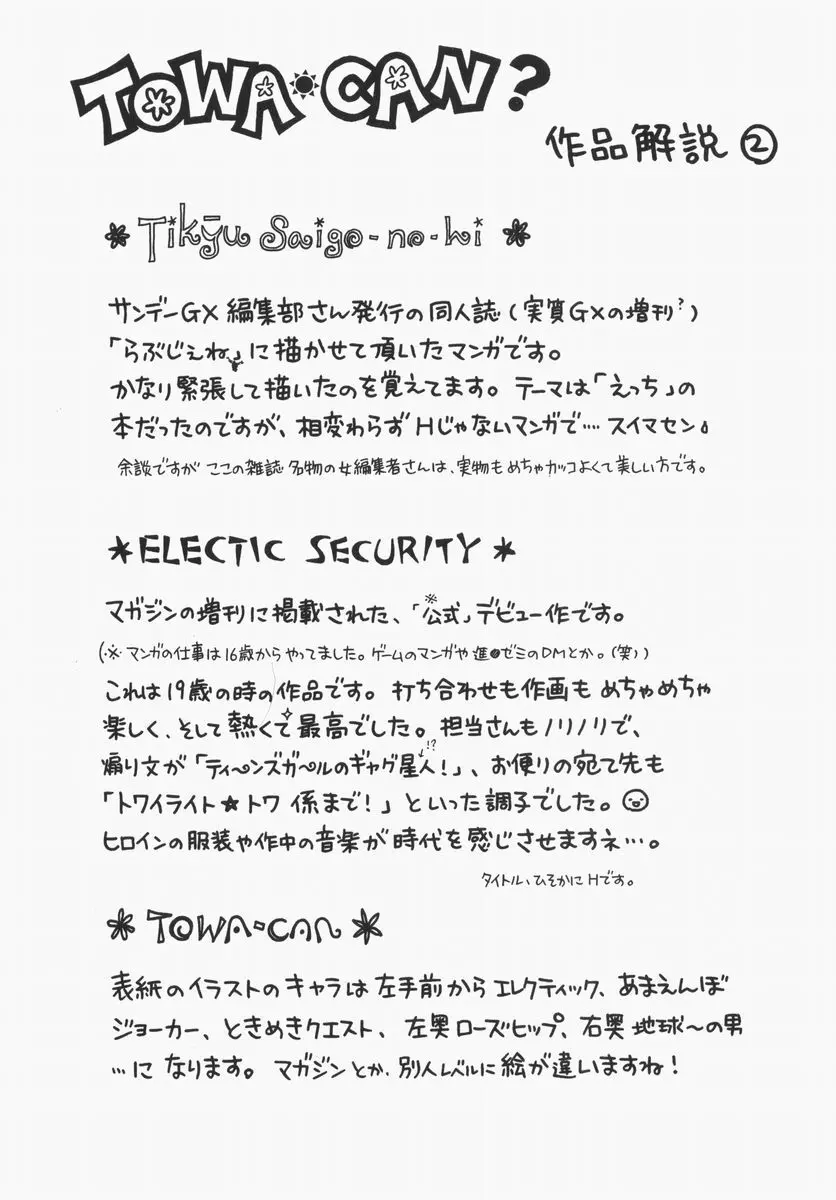 TOWA・CAN?
作品解説②
*Tikyū Saigo-no-hi*
サンデーGX 編集部さん発行の同人誌(実質GXの増刊?)
「らぶじぇね」に描かせて頂いたマンガです。
かなり緊張して描いたのを覚えてます。テーマは「えっち」の
本だったのですが、相変わらずHじゃないマンガで…スイマセン
余談ですがここの雑誌名物の女編集者さんは、実物もめちゃカッコよくて美しい方です。
*ELECTIC SECURITY*
マガジンの増刊に掲載された、「公式」※デビュー作です。
(※マンガの仕事は16歳からやってました。ゲームのマンガや進●ゼミのDMとか。(笑))
これは19歳の時の作品です。打ち合わせも作画もめちゃめちゃ
楽しく、そして熱くて最高でした。担当さんもノリノリで、
煽り文が「ティ〜ンズガ〜ルのギャグ星人!」、お便りの宛て先も
↓!?
「トワイライト★トワ 係まで!」といった調子でした。
ヒロインの服装や作中の音楽が時代を感じさせますネ…。
タイトル、ひそかにHです。
*TOWA・CAN*
表紙のイラストのキャラは左手前からエレクティック、あまえんぼ
ジョーカー、ときめきクエスト、左奥ローズヒップ、右奥 地球〜の男
…になります。マガジンとか、別人レベルに絵が違いますね!